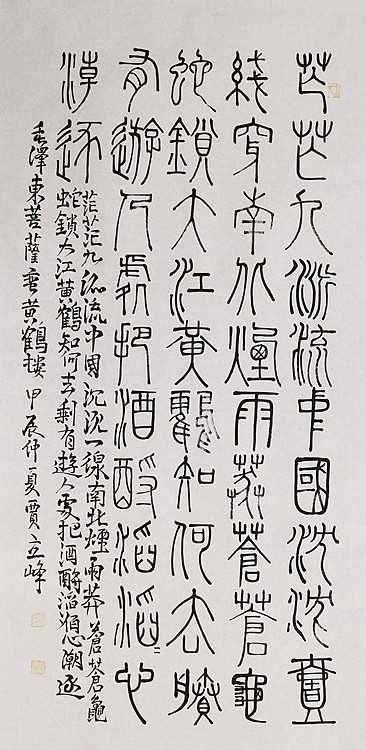 芒芒九派流中國沈沈壹
綫穿南北煙雨莽蒼蒼龜
蛇鎖大江黃鶴知何去賸
有遊人處把酒酹滔滔心
潮逐
茫茫九派流中國沉沉一線南北煙雨莽蒼蒼龜
蛇鎖大江黄鶴知何去剩有遊人處把酒酹滔滔心潮逐
毛澤東菩薩蠻黄鶴樓 甲辰仲夏賈立峰